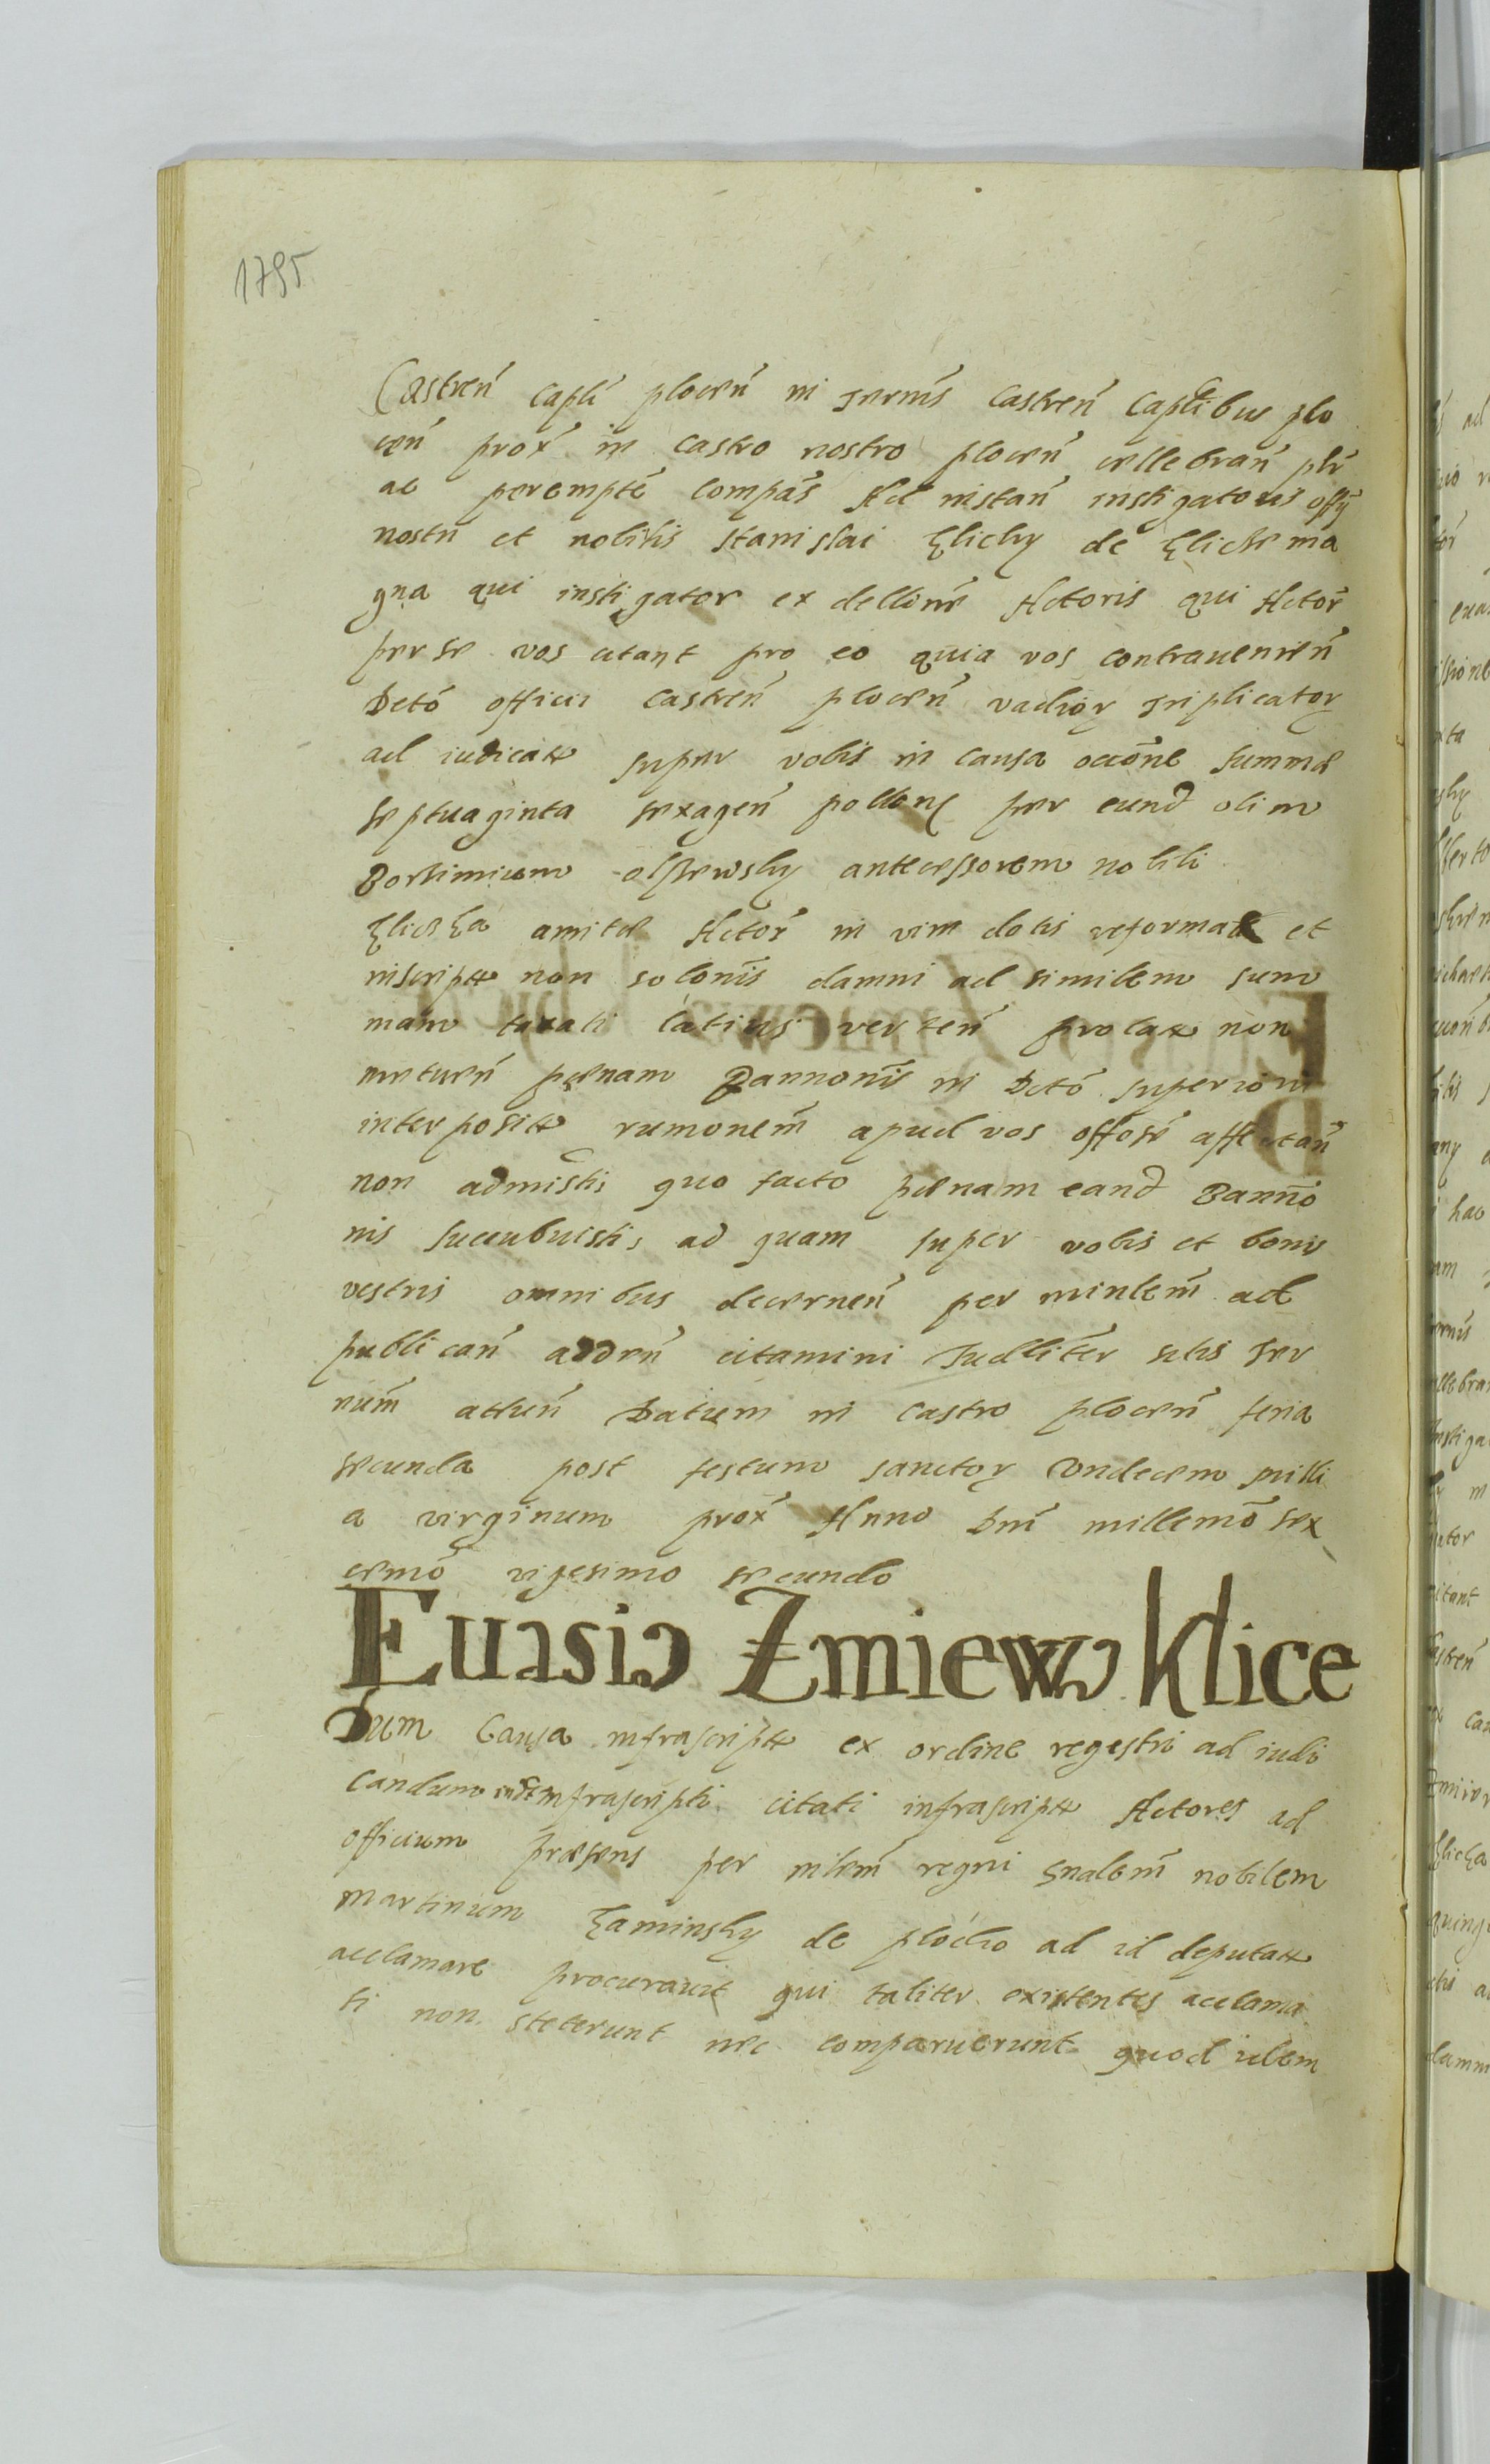 1795
Castreń Capłi płoceń in Termis Castreń Capłibus plo
ceń prox̃ in Castro nostro płoceń cellebrań płr
ac perempte compas Ad instań instigatoris offy
nostri et nobilis Stanislai klicky de klicze ma
gna qui instigator ex dellõne Actoris qui Actor
per se vos citant pro eo quia vos contravenień
Dcto officii castreń płoceń vadior triplicator
ad iudicat super vobis in causa occõne summæ
septuaginta sexageń pollon per eund olim
Borkimium olszewsky antecessorem nobili
klicka amitæ Actor in vim dotis reformat et
inscript non solonis damni ad similem sum
mam taxati latius verteń prolat non
metueń pœnam Bannonis in Dcto superiori
interposit rumonem apud vos offose affectań
non admistis quo facto pœnam eand Banno
nis succubuistis ad quam super vobis et bonis
vestris omnibus decerneń per minlem ad
publicań addeń citamini Judliter sitis ter
num atteń Datum in castro płoceń feria
secunda post festum sanctor Undecem milli
a virginum prox̃ Anno Dni millemo sex
cemo vigesimo secundo
Euasio Zmiewo klice
Dum Causa infrascript ex ordine regestri ad iudi
candum infrascripti citati infrascript Actores ad
officium præsens per mlem regni Gnalem nobilem
Martinum kaminsky de płocko ad id deputat
acclamare procurauit qui taliter existentes acclama
ti non steterunt nec comparuerunt quod idem